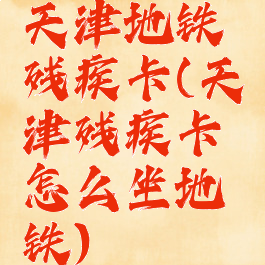 天津地铁
残疾卡(天
津残疾卡
怎么坐地
铁)